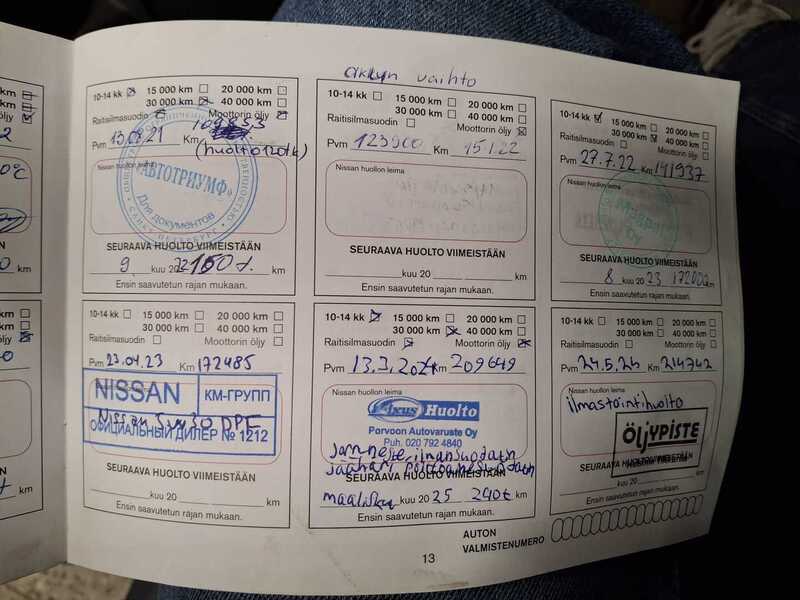 akun vaihto
10-14 kk 15 000 km 20 000 km
30 000 km 40 000 km
Raitisilmasuodin Moottorin öljy
Pvm 13.09.21 Km
(huolto120tk)
Nissan huollon leima
«АВТОТРИУМФ»
Для документов
САНКТ-ПЕТЕРБУРГ
SEURAAVA HUOLTO VIIMEISTÄÄN
9 kuu 2022 150t. km
Ensin saavutetun rajan mukaan.
10-14 kk 15 000 km 20 000 km
30 000 km 40 000 km
Raitisilmasuodin Moottorin öljy
Pvm 123900 Km 15.1.22
Nissan huollon leima
SEURAAVA HUOLTO VIIMEISTÄÄN
kuu 20 km
Ensin saavutetun rajan mukaan.
10-14 kk 15 000 km 20 000 km
30 000 km 40 000 km
Raitisilmasuodin Moottorin öljy
Pvm 27.7.22 Km 141937
Nissan huollon leima
Oy
SEURAAVA HUOLTO VIIMEISTÄÄN
8 kuu 20 23 172000 km
Ensin saavutetun rajan mukaan.
10-14 kk 15 000 km 20 000 km
30 000 km 40 000 km
Raitisilmasuodin Moottorin öljy
Pvm 23.04.23 Km 172485
NISSAN КМ-ГРУПП
Nissan 5w30 DPF
ОФИЦИАЛЬНЫЙ ДИЛЕР № 1212
SEURAAVA HUOLTO VIIMEISTÄÄN
kuu 20 km
Ensin saavutetun rajan mukaan.
10-14 kk 15 000 km 20 000 km
30 000 km 40 000 km
Raitisilmasuodin Moottorin öljy
Pvm 13.3.2024 Km 209649
Nissan huollon leima
Fixus Huolto
Porvoon Autovaruste Oy
Puh. 020 792 4840
SEURAAVA HUOLTO VIIMEISTÄÄN
maalisku kuu 20 25 240t km
Ensin saavutetun rajan mukaan.
10-14 kk 15 000 km 20 000 km
30 000 km 40 000 km
Raitisilmasuodin Moottorin öljy
Pvm 24.5.24 Km 214742
Nissan huollon leima
ilmastointihuolto
ÖLJYPISTE
SEURAAVA HUOLTO VIIMEISTÄÄN
kuu 20 km
Ensin saavutetun rajan mukaan.
AUTON
VALMISTENUMERO
13